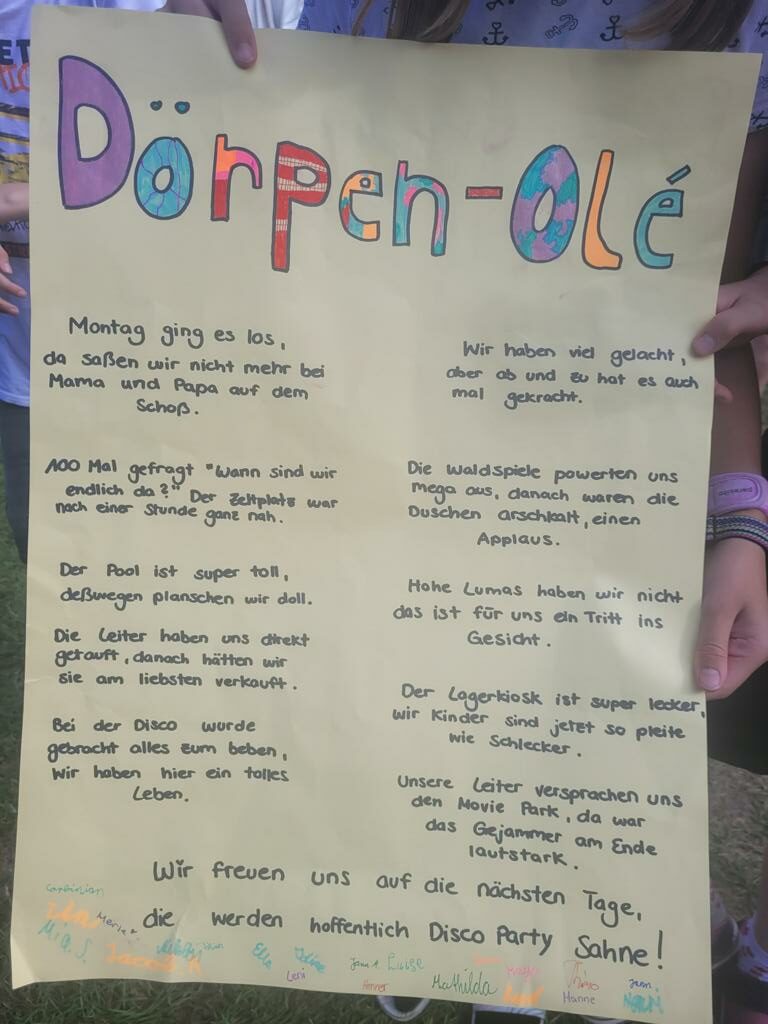 Dörpen-Olé
Montag ging es los,
da saßen wir nicht mehr bei
Mama und Papa auf dem
Schoß.
100 Mal gefragt "Wann sind wir
endlich da?" Der Zeltplatz war
nach einer Stunde ganz nah.
Der Pool ist super toll,
deßwegen planschen wir doll.
Die Leiter haben uns direkt
getauft, danach hätten wir
sie am liebsten verkauft.
Bei der Disco wurde
gebracht alles zum beben,
Wir haben hier ein tolles
Leben.
Wir haben viel gelacht,
aber ab und zu hat es auch
mal gekracht.
Die Waldspiele powerten uns
mega aus, danach waren die
Duschen arschkalt, einen
Applaus.
Hohe Lumas haben wir nicht
das ist für uns ein Tritt ins
Gesicht.
Der Lagerkiosk ist super lecker,
wir Kinder sind jetzt so pleite
wie Schlecker.
Unsere Leiter versprachen uns
den Movie Park, da war
das Gejammer am Ende
lautstark.
Wir freuen uns auf die nächsten Tage,
die werden hoffentlich Disco Party Sahne!
Merle
Mia S.
Jacob R
Ella
Leni
Jann
Mathilda
Hanne